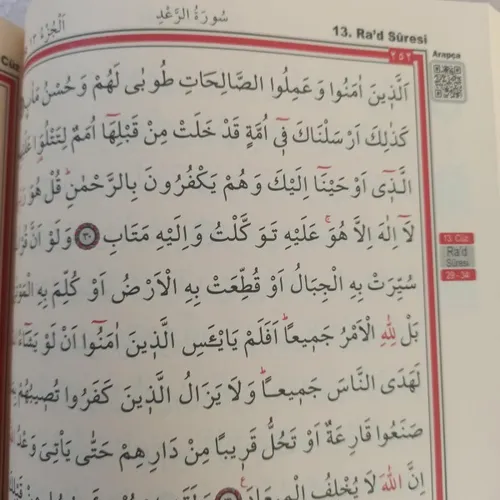 سُورَةُ الرَّعْدِ
اَلْجُزْءُ ١٣
13. Ra'd Sûresi
Cüz
٢٥٢
Arapça
اَلَّذ۪ينَ اٰمَنُوا وَعَمِلُوا الصَّالِحَاتِ طُوبٰى لَهُمْ وَحُسْنُ مَاٰبٍ
كَذٰلِكَ اَرْسَلْنَاكَ ف۪ٓي اُمَّةٍ قَدْ خَلَتْ مِنْ قَبْلِهَٓا اُمَمٌ لِتَتْلُوَ۬ا
الَّذ۪ٓي اَوْحَيْنَٓا اِلَيْكَ وَهُمْ يَكْفُرُونَ بِالرَّحْمٰنِۜ قُلْ هُوَ
لَٓا اِلٰهَ اِلَّا هُوَۚ عَلَيْهِ تَوَكَّلْتُ وَاِلَيْهِ مَتَابِ ٣٠ وَلَوْ اَنَّ
سُيِّرَتْ بِهِ الْجِبَالُ اَوْ قُطِّعَتْ بِهِ الْاَرْضُ اَوْ كُلِّمَ بِهِ
بَلْ لِلّٰهِ الْاَمْرُ جَم۪يعاًۜ اَفَلَمْ يَايْـَٔسِ الَّذ۪ينَ اٰمَنُٓوا اَنْ لَوْ
لَهَدَى النَّاسَ جَم۪يعاًۜ وَلَا يَزَالُ الَّذ۪ينَ كَفَرُوا تُص۪يبُهُمْ
صَنَعُوا قَارِعَةٌ اَوْ تَحُلُّ قَر۪يباً مِنْ دَارِهِمْ حَتّٰى يَأْتِيَ وَعْدُ
اِنَّ اللّٰهَ لَا يُخْلِفُ الْم۪يعَادَ۟
13. Cüz
Ra'd
Sûresi
29 - 34